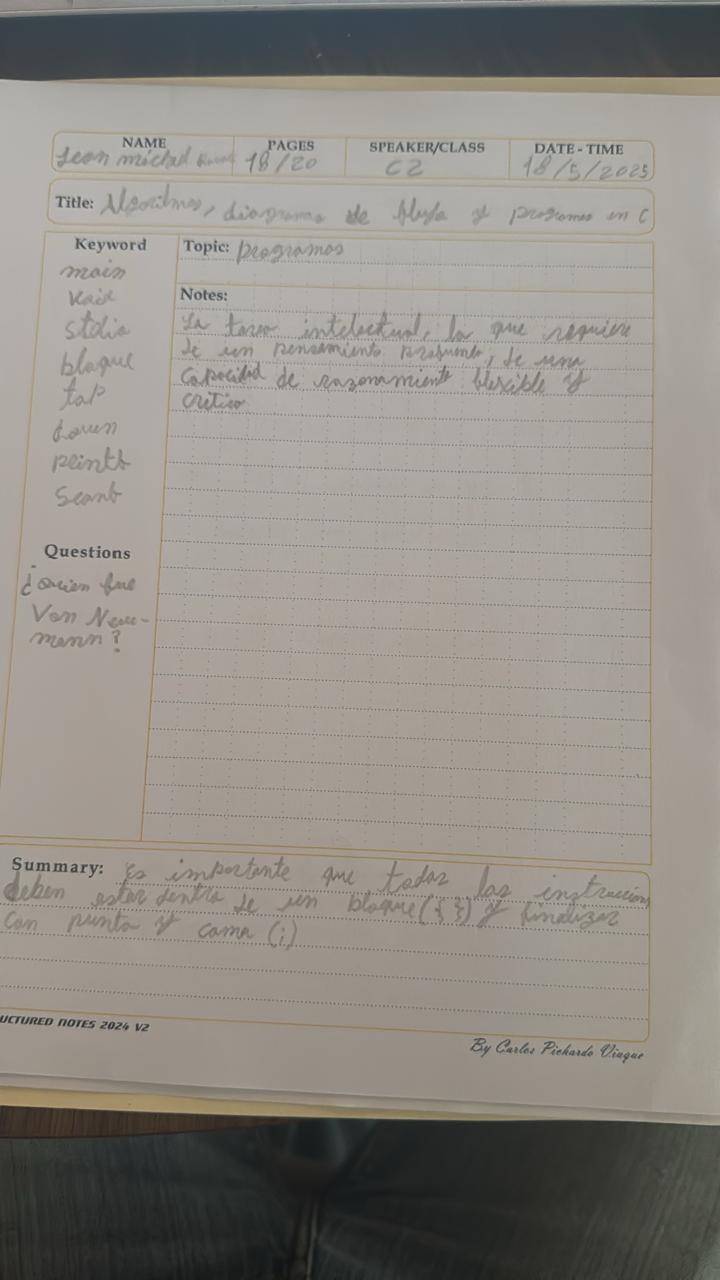 NAME PAGES SPEAKER/CLASS DATE - TIME
Jean michael 18/20 C2 18/5/2025
Title: Algoritmos, diagramas de flujo y programas en C
Keyword
main
void
stdio
bloque
tap
down
printf
Scanf
Questions
¿Quien fue
Von Neu-
mann?
Topic: programas
Notes:
La tarea intelectual, la que requiere
de un pensamiento profundo, de una
capacidad de razonamiento flexible y
critico
Summary: Es importante que todas las instruccion
deben estar dentro de un bloque ({ }) y finalizar
con punto y coma (;)
UCTURED NOTES 2024 V2
By Carlos Pichardo Viuque